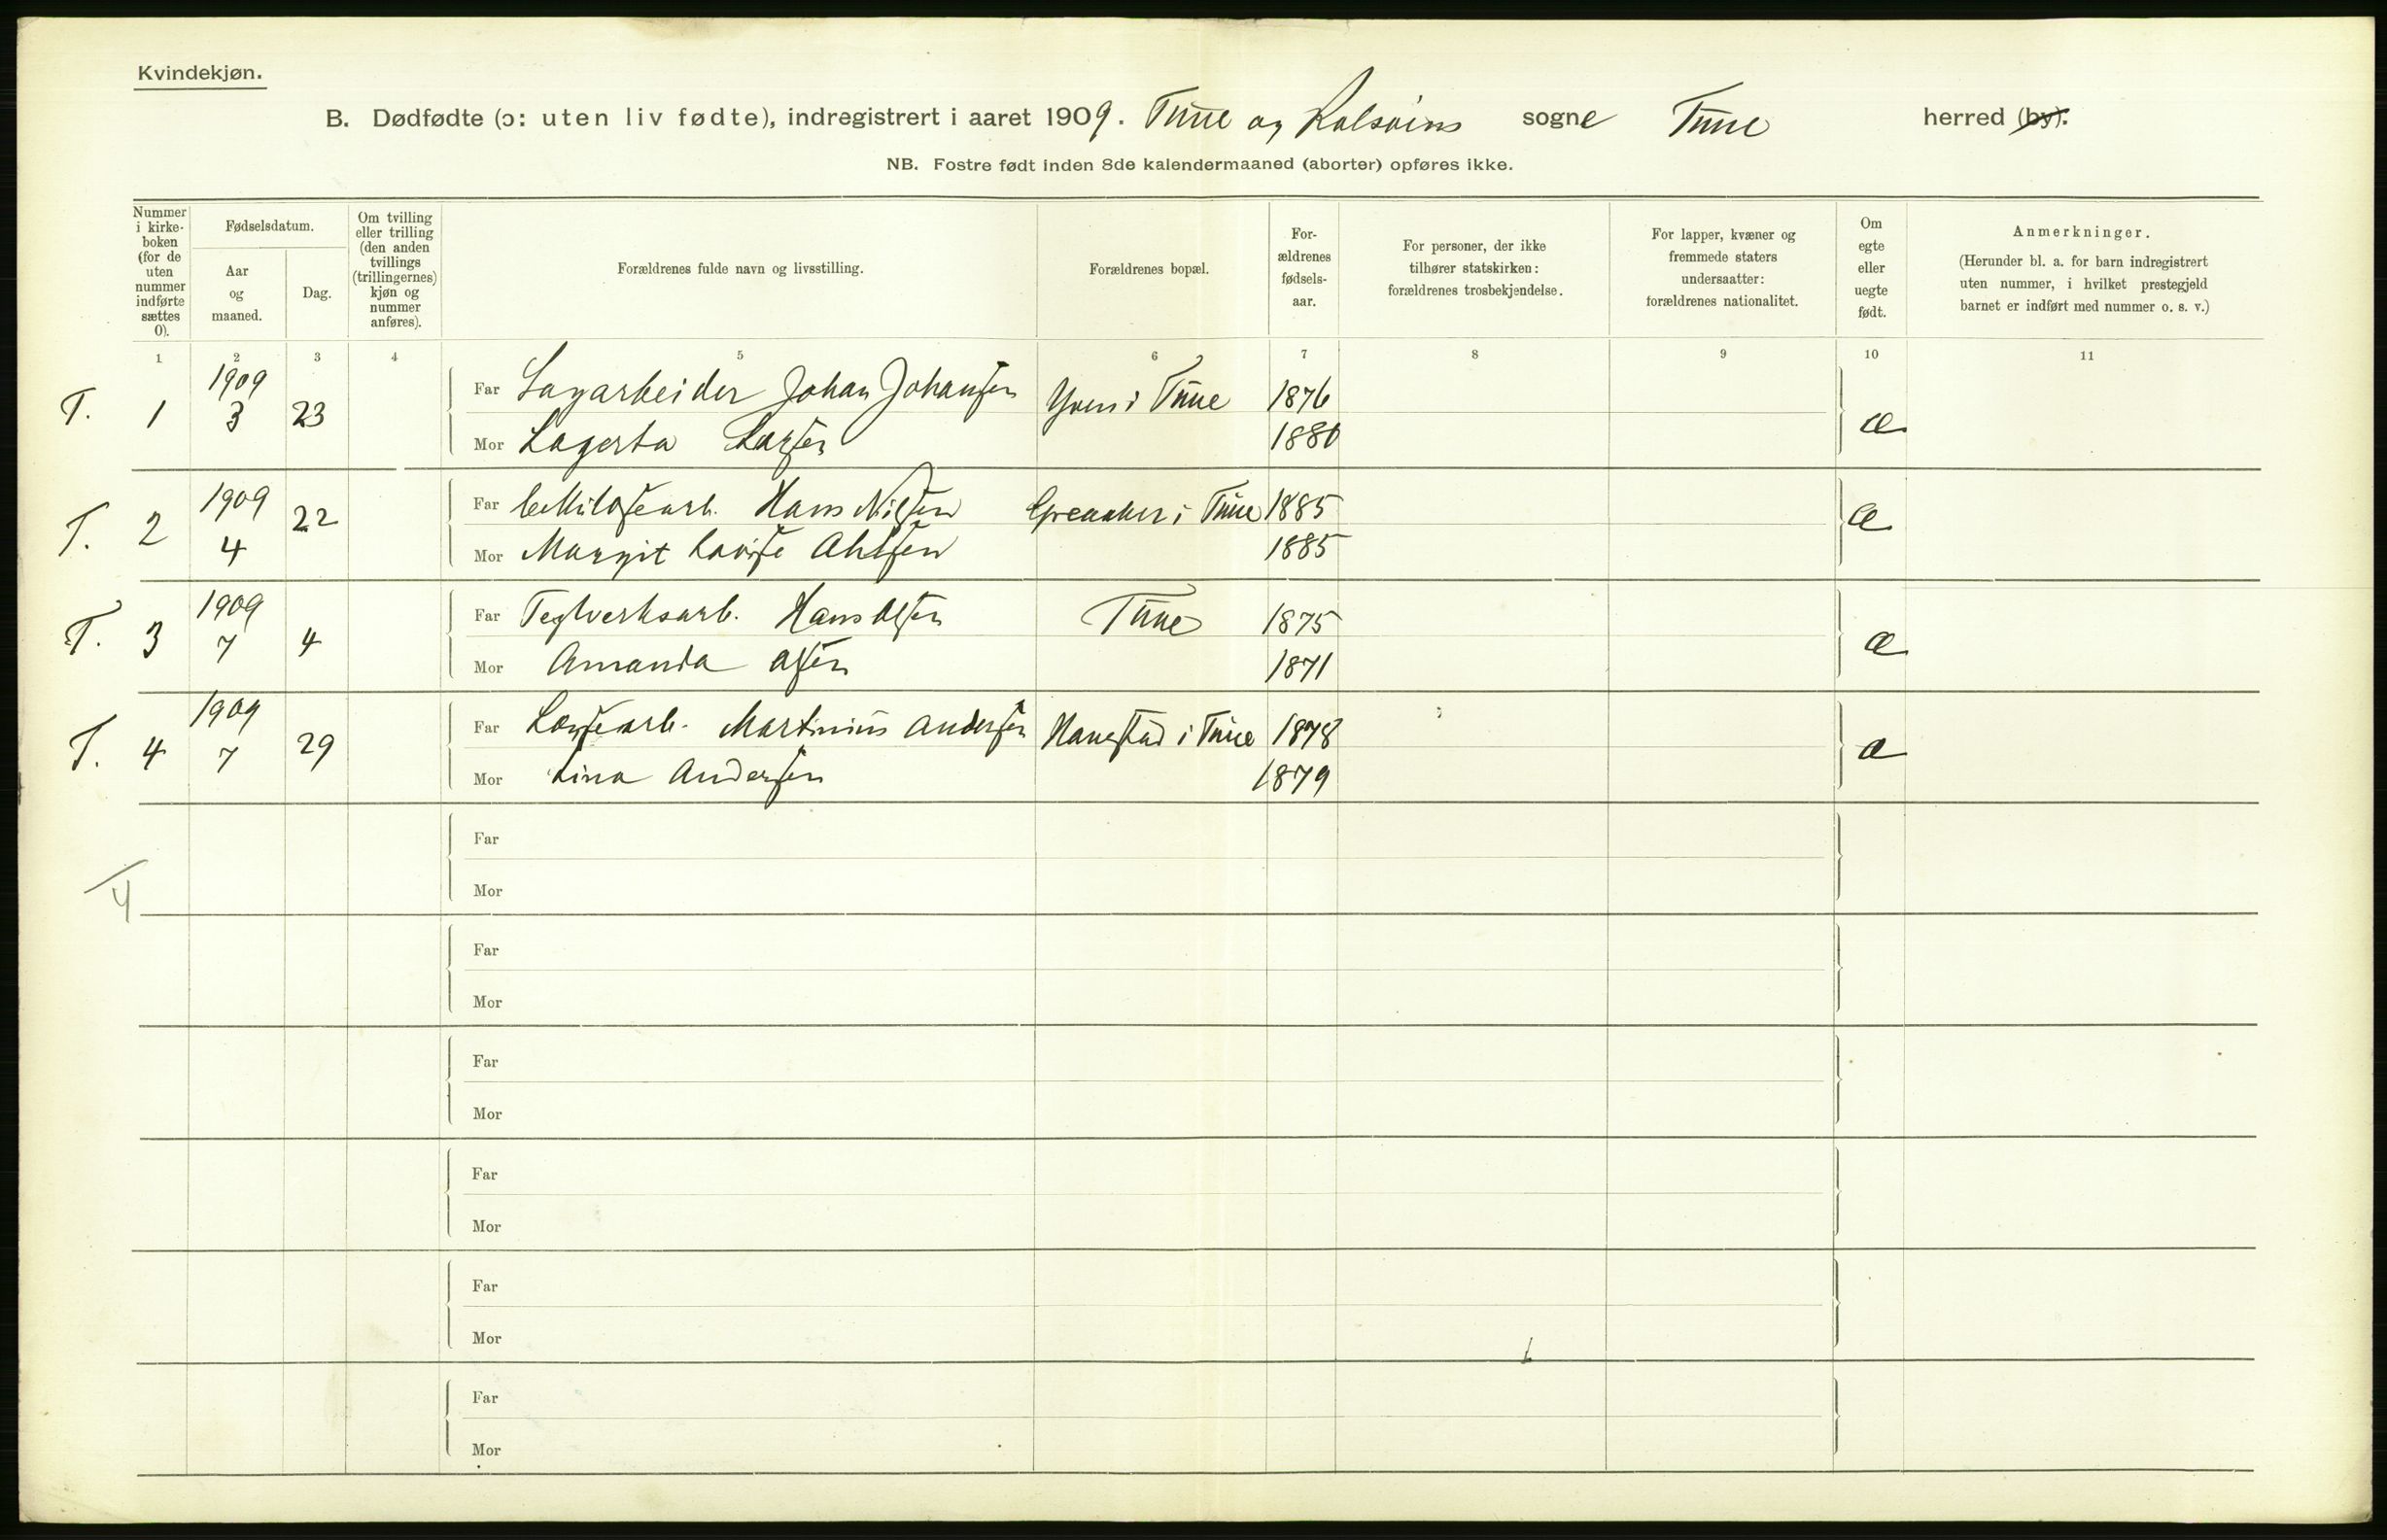 Kvindekjøn.
B. Dødfødte (ɔ: uten liv fødte), indregistrert i aaret 1909. Tune og Rolsøiens sogne Tune herred (by).
NB. Fostre født inden 8de kalendermaaned (aborter) opføres ikke.
Nummer i kirke-boken (for de uten nummer indførte sættes 0).
Fødselsdatum.
Aar og maaned.
Dag.
Om tvilling eller trilling (den anden tvillings (trillingernes) kjøn og nummer anføres).
Forældrenes fulde navn og livsstilling.
Forældrenes bopæl.
For-ældrenes fødsels-aar.
For personer, der ikke tilhører statskirken: forældrenes trosbekjendelse.
For lapper, kvæner og fremmede staters undersaatter: forældrenes nationalitet.
Om egte eller uegte født.
Anmerkninger.
(Herunder bl. a. for barn indregistrert uten nummer, i hvilket prestegjeld barnet er indført med nummer o. s. v.)
1 2 3 4 5 6 7 8 9 10 11
T. 1 1909 3 23 Far Sagarbeider Johan Johansen Yven i Tune 1876 æ
Mor Lagerta Larsen 1880
T. 2 1909 4 22 Far Cellulosearb. Hans Nilsen Greaaker i Tune 1885 æ
Mor Margit Lovise Ahlsen 1885
T. 3 1909 7 4 Far Teglverksarb. Hans Olsen Tune 1875 æ
Mor Amanda Olsen 1871
T. 4 1909 7 29 Far Lousearb. Martinius Andersen Hanestad i Tune 1878 æ
Mor Lina Andersen 1879
Far
Mor
4
Far
Mor
Far
Mor
Far
Mor
Far
Mor
Far
Mor